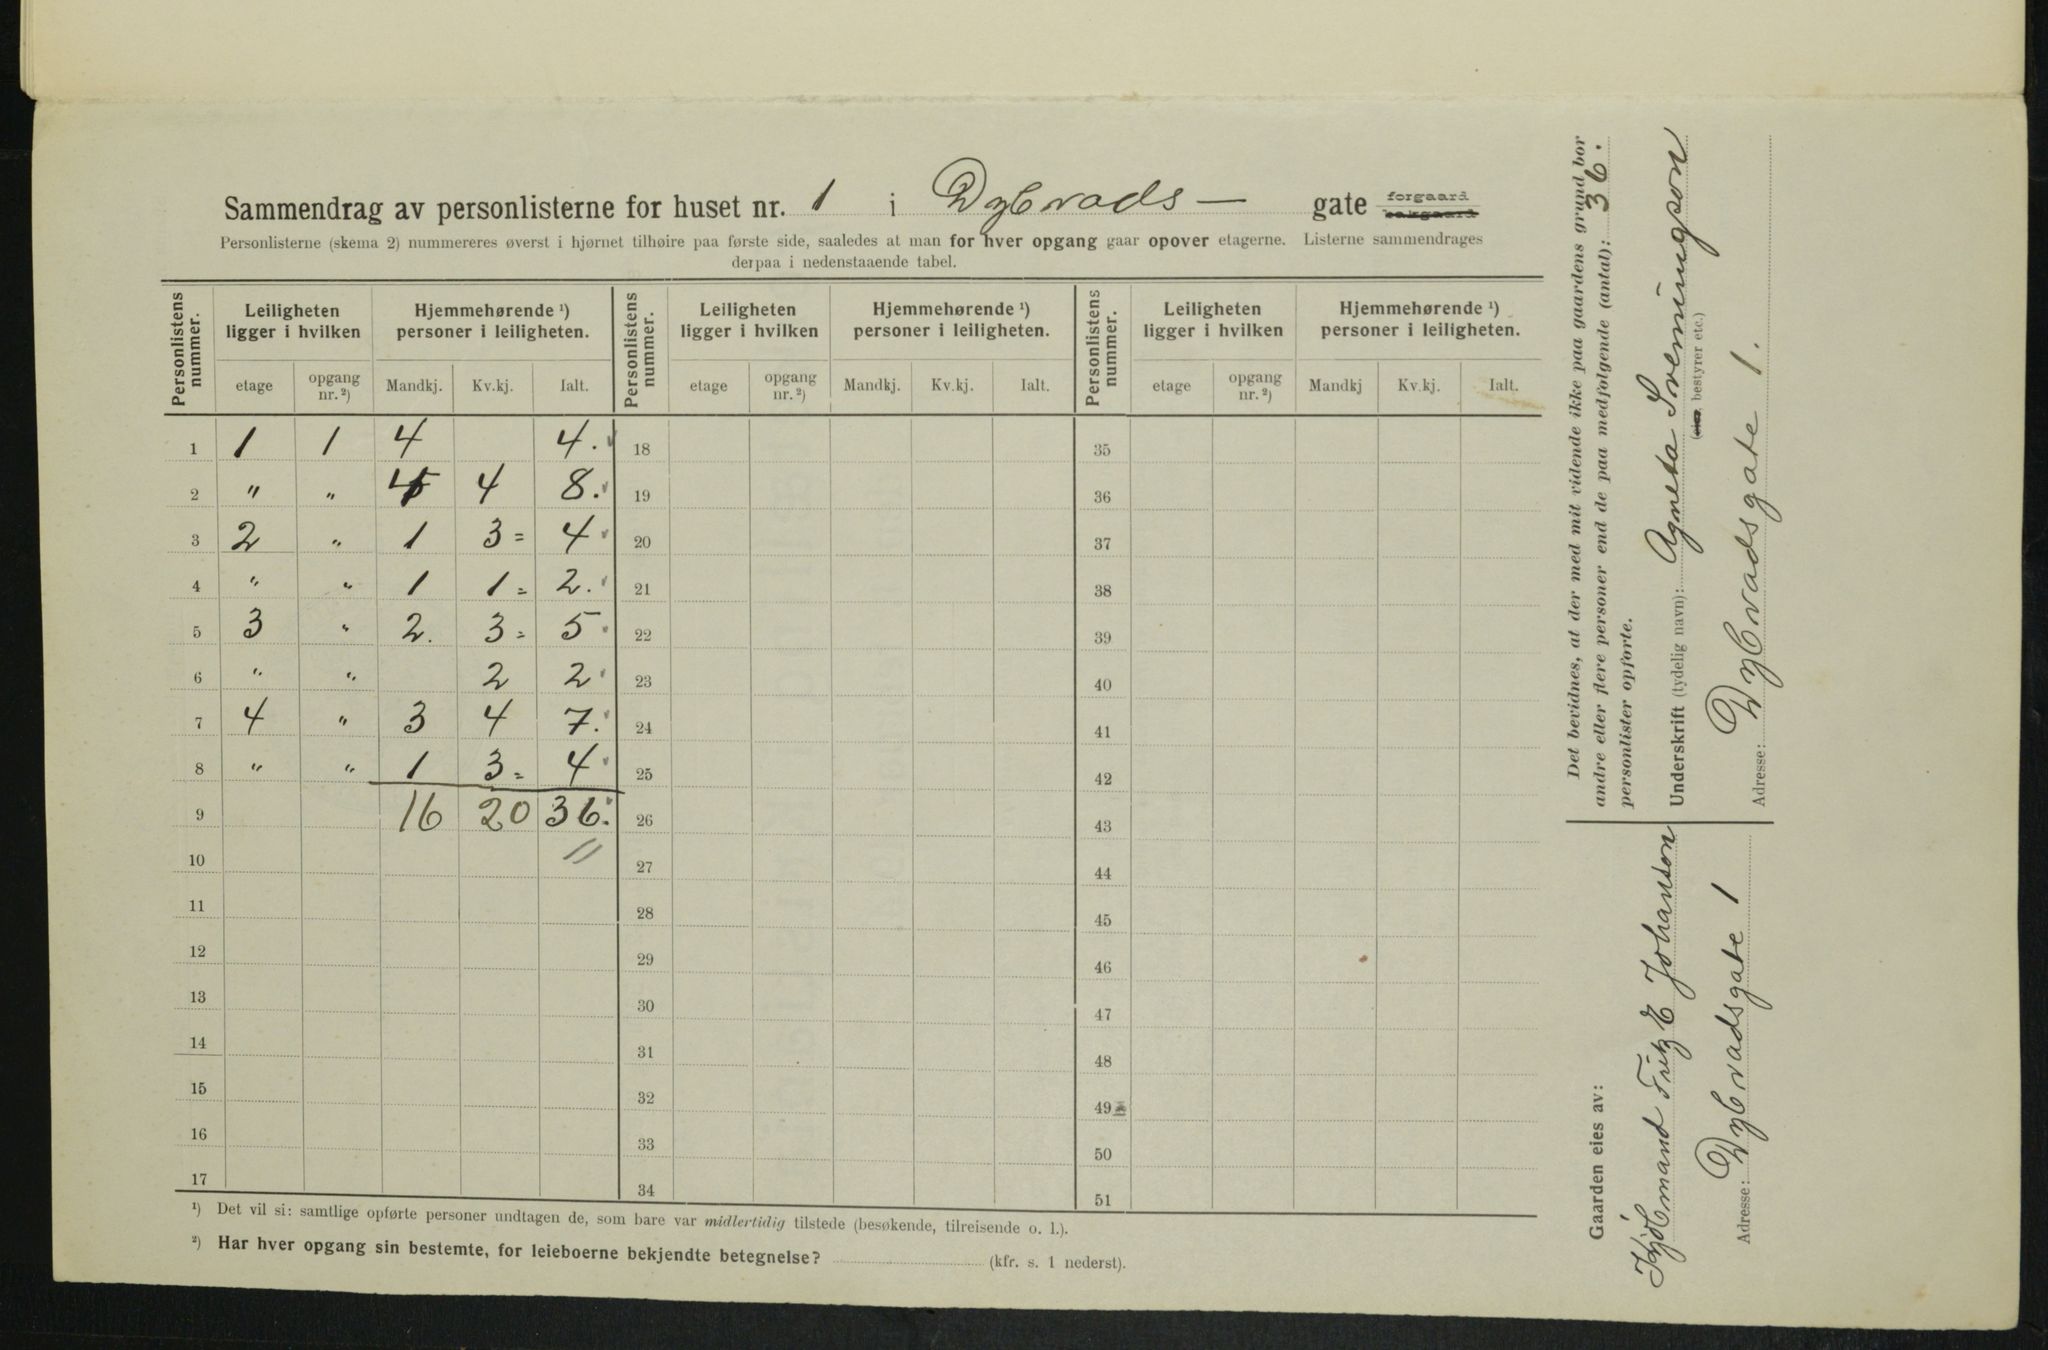 Sammendrag av personlisterne for huset nr. 1 i Dybvads— gate forgaard bakgaard
Personlisterne (skema 2) nummereres øverst i hjørnet tilhøire paa første side, saaledes at man for hver opgang gaar opover etagerne. Listerne sammendrages
derpaa i nedenstaaende tabel.
Personlistens nummer. Leiligheten ligger i hvilken Hjemmehørende ¹) personer i leiligheten. Personlistens nummer. Leiligheten ligger i hvilken Hjemmehørende ¹) personer i leiligheten. Personlistens nummer. Leiligheten ligger i hvilken Hjemmehørende ¹) personer i leiligheten.
etage opgang nr. ²) Mandkj. Kv.kj. Ialt. etage opgang nr. ²) Mandkj. Kv.kj. Ialt. etage opgang nr. ²) Mandkj Kv.kj. Ialt.
1 1 1 4 4. 18 35
2 " " 4 4 8. 19 36
3 2 " 1 3 = 4 20 37
4 " " 1 1 = 2. 21 38
5 3 " 2. 3 = 5 22 39
6 " " 2 2 23 40
7 4 " 3 4 7. 24 41
8 " " 1 3 = 4 25 42
9 16 20 36. 26 43
10 27 44
11 28 45
12 29 46
13 30 47
14 31 48
15 32 49
16 33 50
17 34 51
¹) Det vil si: samtlige opførte personer undtagen de, som bare var midlertidig tilstede (besøkende, tilreisende o. l.).
²) Har hver opgang sin bestemte, for leieboerne bekjendte betegnelse? (kfr. s. 1 nederst).
Det bevidnes, at der med mit vidende ikke paa gaardens grund bor
andre eller flere personer end de paa medfølgende (antal): 36.
personlister opførte.
Underskrift (tydelig navn): Agneta Sveinungson
(eier, bestyrer etc.)
Adresse: Dybvadsgate 1.
Gaarden eies av:
Kjøbmand Fritz E Johanson
Adresse: Dybvadsgate 1